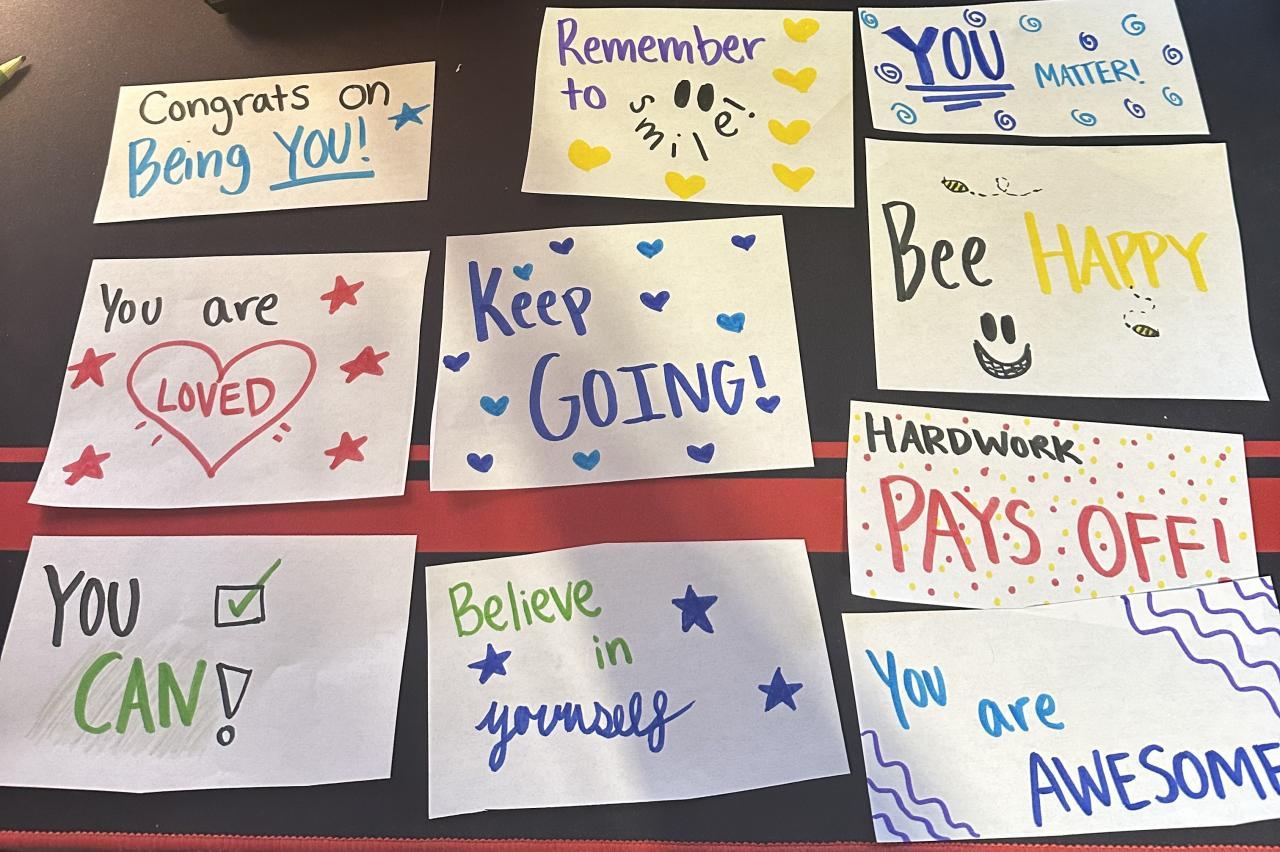 Congrats on
Being YOU!
Remember
to smile!
YOU MATTER!
You are
LOVED
Keep
GOING!
Bee HAPPY
HARDWORK
PAYS OFF!
YOU
CAN!
Believe
in
yourself
You are
AWESOME